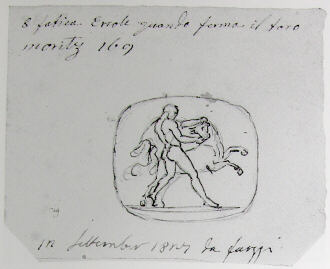 8 fatica. Ercole quando ferma il toro
moritz 169
In Settember 18